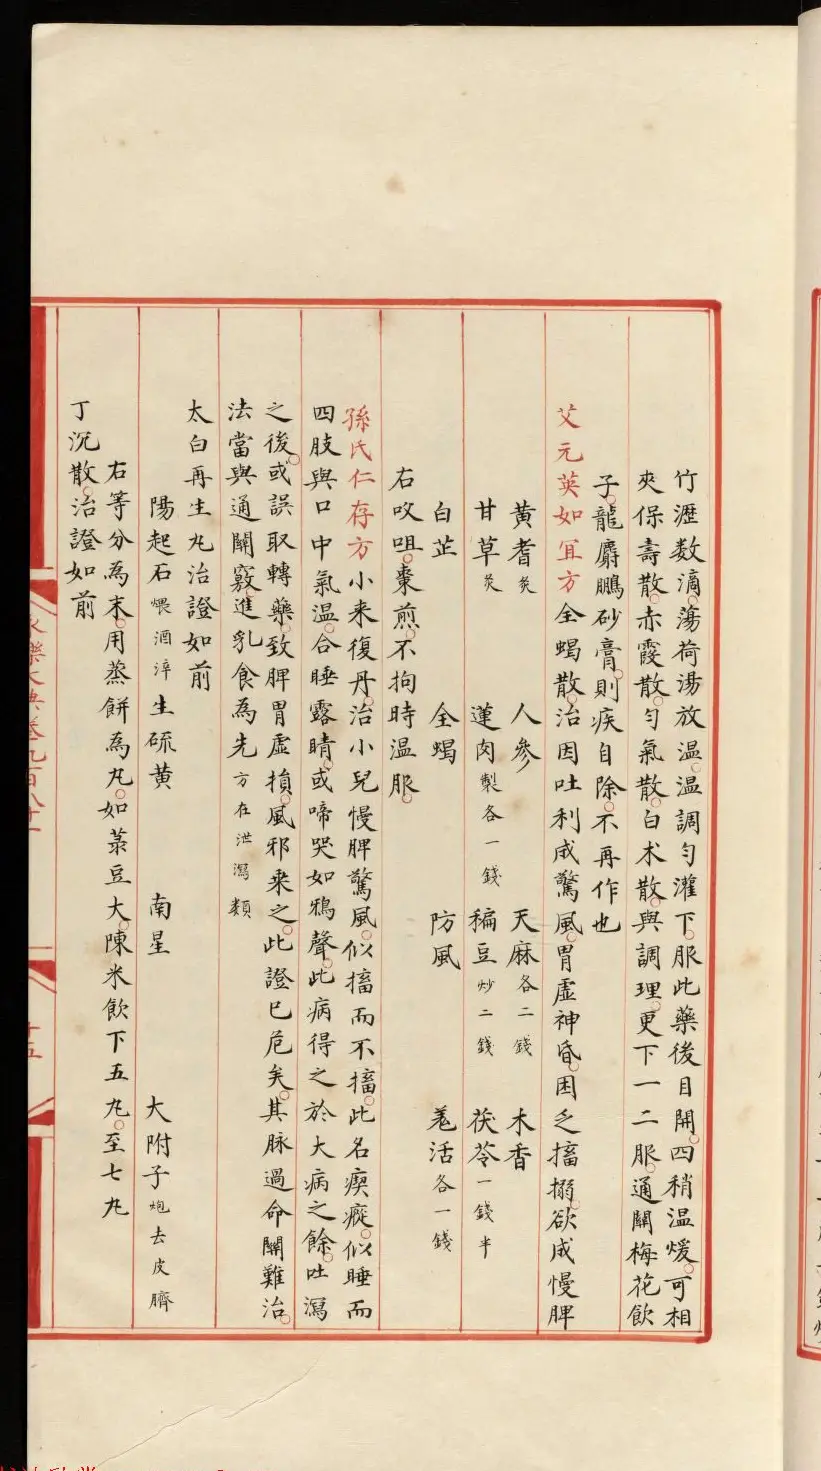 竹瀝數滴。蕩荷湯放温。温調勻灌下。服此藥後目開。四稍温煖。可相
夾保壽散。赤霞散。勻氣散。白术散。與調理。更下一二服。通關梅花飲
子。龍麝鵬砂膏。則疾自除。不再作也
艾元英如冝方全蝎散。治因吐利成驚風。胃虛神昏。困乏搐搦。欲成慢脾
黃耆炙 人參 天麻各二錢 木香
甘草炙 蓮肉製各一錢 稨豆炒二錢 茯苓一錢半
白芷 全蝎 防風 羗活各一錢
右㕮咀。棗煎。不拘時温服。
孫氏仁存方小来復丹。治小兒慢脾驚風。似搐而不搐。此名瘈瘲。似睡而
四肢與口中氣温。合睡露睛。或啼哭如鴉聲。此病得之於大病之餘。吐瀉
之後。或誤取轉藥。致脾胃虛損。風邪乗之。此證已危矣。其脉過命關難治。
法當與通關竅。進乳食為先方在泄瀉類
太白再生丸治證如前
陽起石煨酒淬 生硫黄 南星 大附子炮去皮臍
右等分為末。用蒸餅為丸。如菉豆大。陳米飲下五丸。至七丸
丁沉散。治證如前
十五